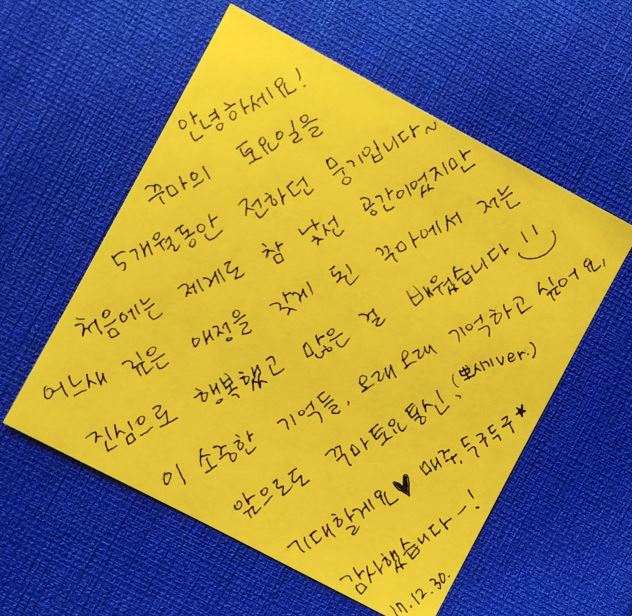 안녕하세요!
꾸마의 토요일을
5개월동안 전하던 뭉기입니다~
처음에는 제게도 참 낯선 공간이었지만
어느새 깊은 애정을 갖게 된 꾸마에서 저는
진심으로 행복했고 많은 걸 배웠습니다
이 소중한 기억들, 오래오래 기억하고 싶어요,
앞으로도 꾸마토요통신, (뽀시기ver.)
기대할게요♥ 매주, 두구두구★
감사했습니다-!
17.12.30.